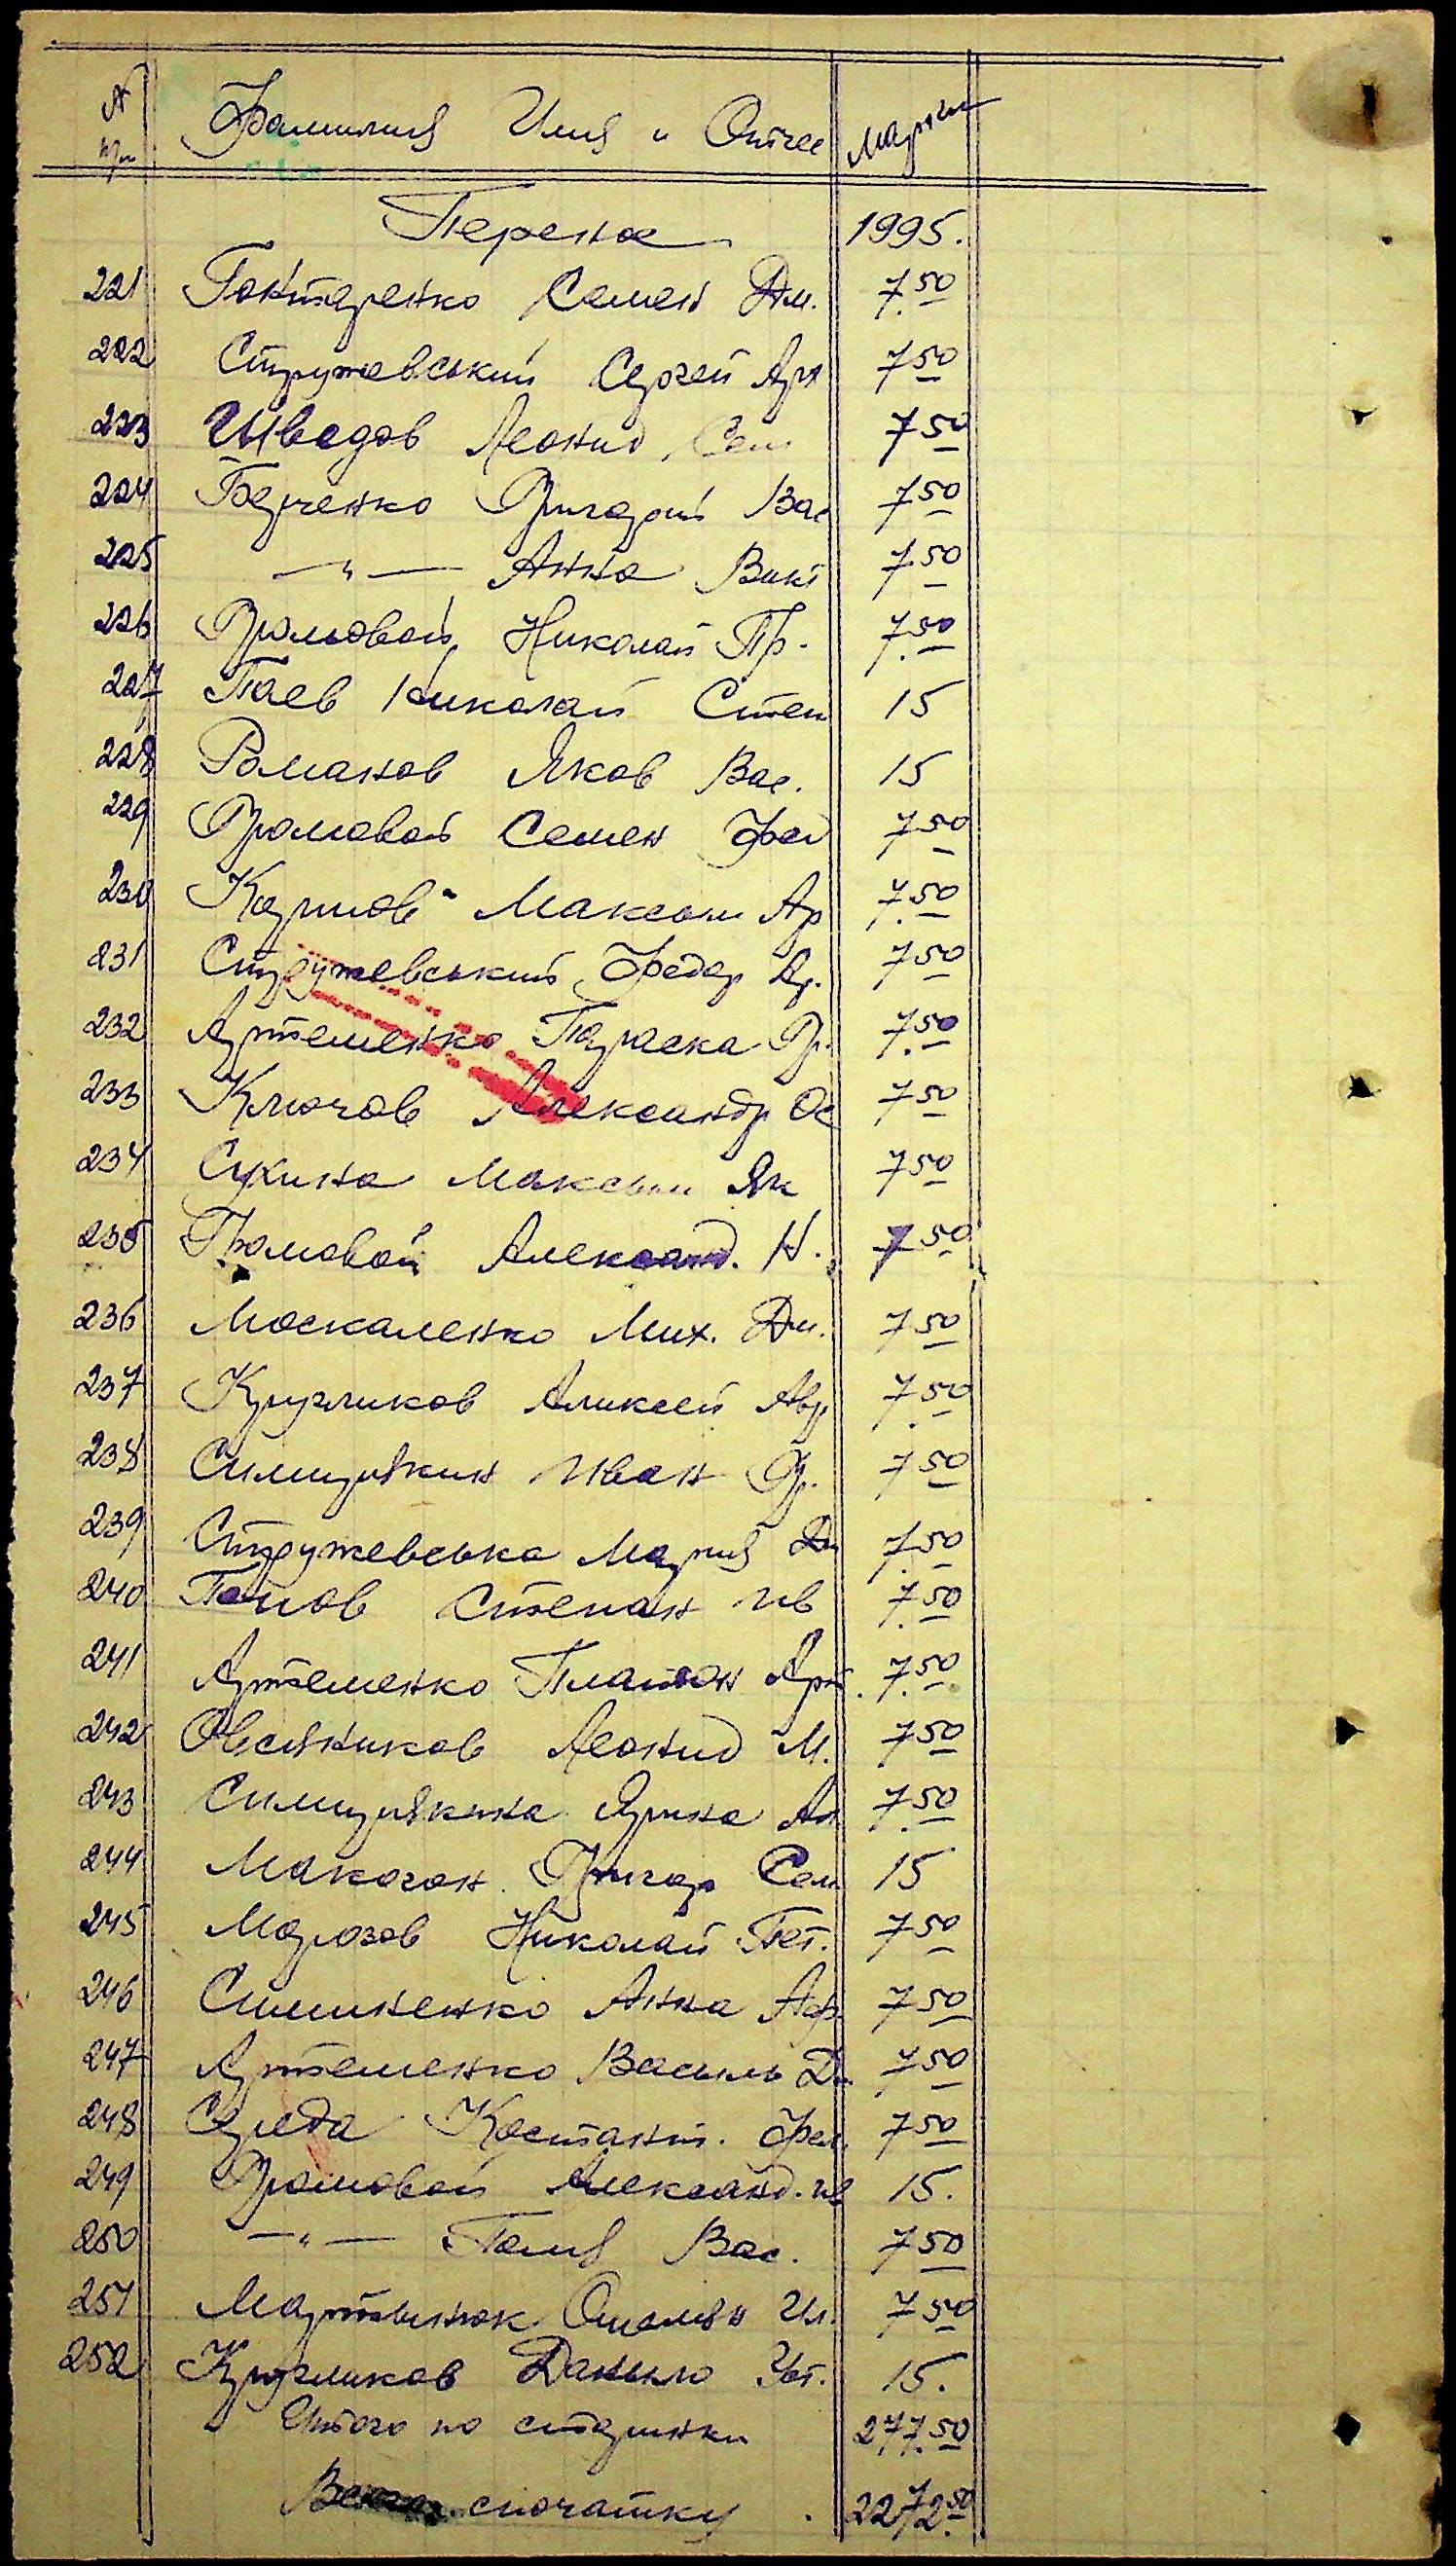 № п/п Фамилия Имя и Отчес Марки
Перенос 1995.
221 Гонтаренко Семен Дм. 7.50
222 Стружевський Сергей Арт 7 50
223 Шведов Леонид Сем 7 50
224 Барченко Григорий Вас 7 50
225 —"— Анна Викт 7 50
226 Громовой Николай Пр. 7.50
227 Паев Николай Степ 15
228 Романов Яков Вас. 15
229 Громовой Семен Фед 7 50
230 Карпов Максим Ар 7.50
231 Стружевський Федор Ар. 7 50
232 Артеменко Параска Гр. 7.50
233 Ключов Александр Ос 7 50
234 Сухина Максим Як 7 50
235 Громовой Александ. Н. 7 50
236 Москаленко Мих. Дм. 7 50
237 Кругликов Аликсей Авр 7 50
238 Симицякин Иван Гр. 7 50
239 Стружевська Мария Дм 7.50
240 Попов Степан Ив 7.50
241 Артеменко Платон Арт. 7.50
242 Овсяников Леонид М. 7 50
243 Симицякина Ярина Ан 7.50
244 Макогон Григор Сем 15
245 Морозов Николай Пет. 7 50
246 Симиненко Анна Аф 7 50
247 Артеменко Василь Дм. 7 50
248 Середа Костант. Фед. 7 50
249 Громовой Александ. Ив 15.
250 —"— Галя Вас. 7 50
251 Мартынюк Омелян Ил. 7 50
252 Кругликов Данило Уст. 15.
Итого по старинки 277.50
Всего спочатку 2272.50